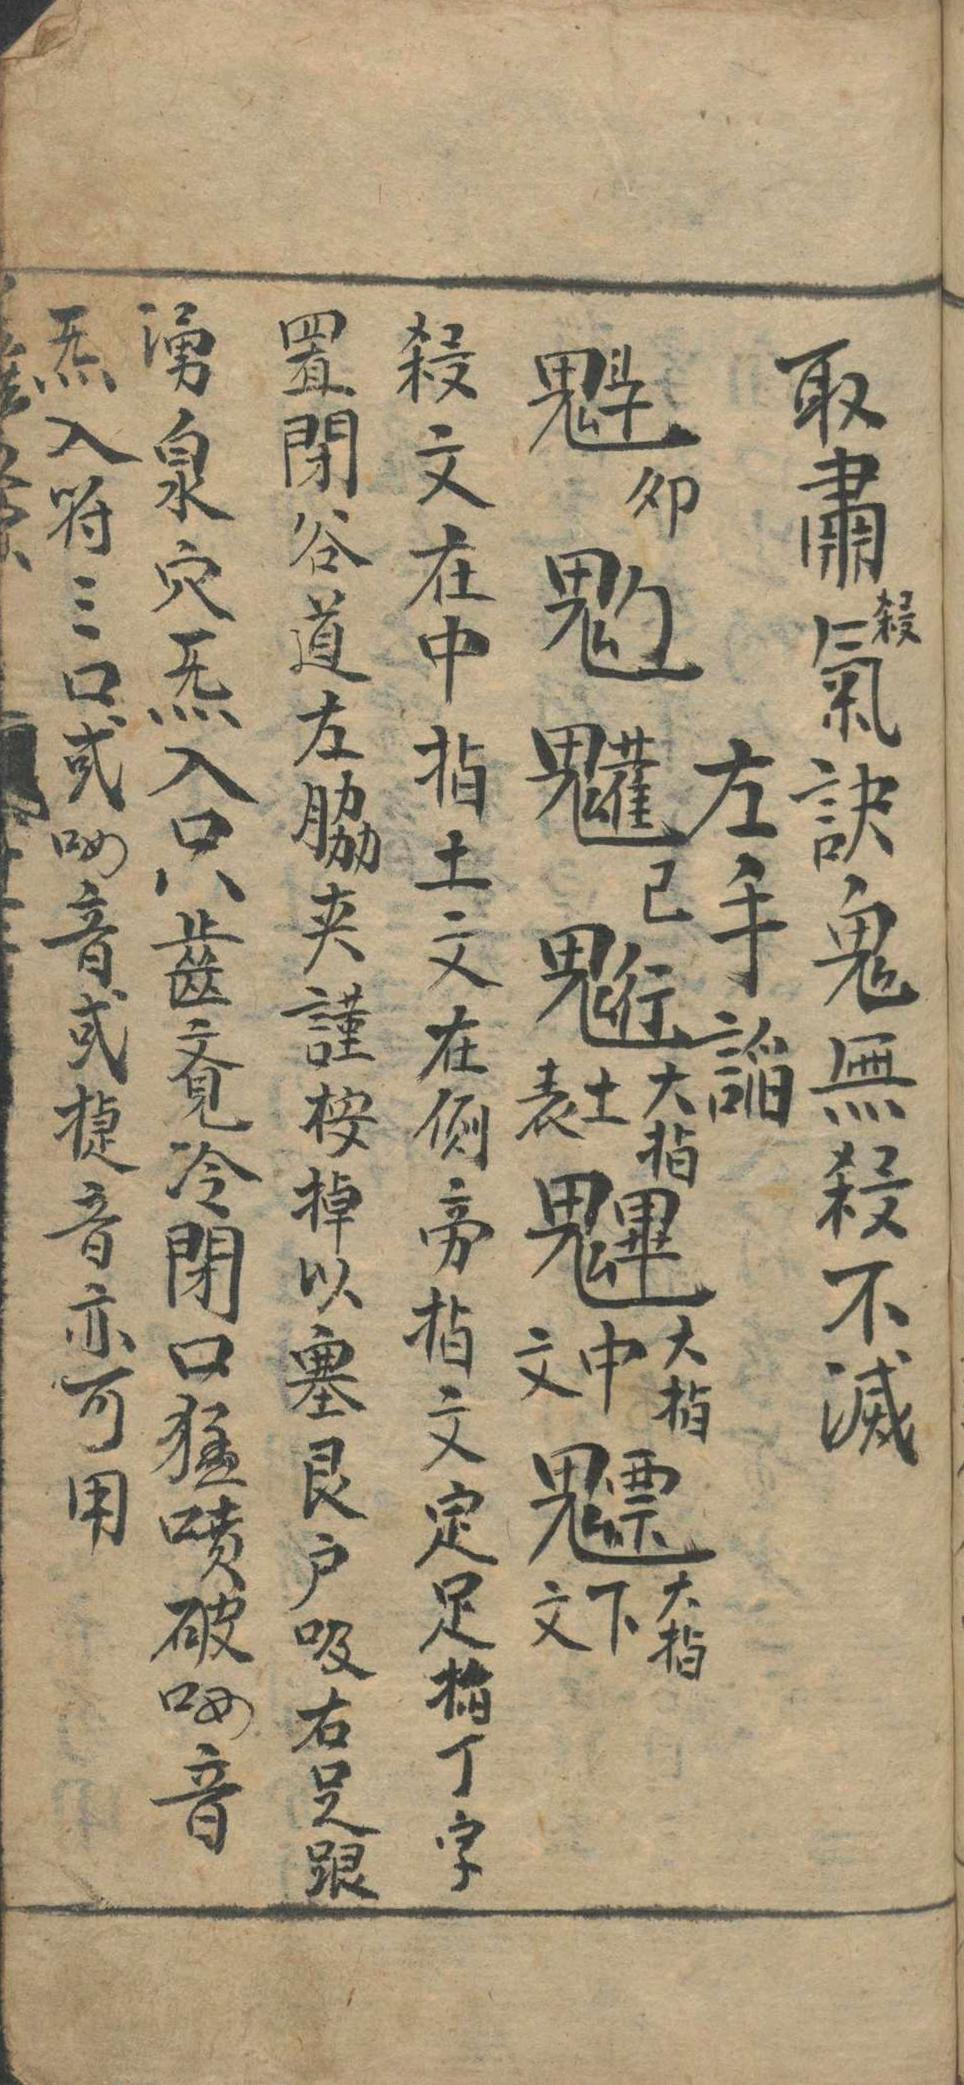 取肅殺氣訣鬼無殺不滅
左手謟
魁卯䰢魓巳䰢大指土表魓大指中文魒大指下文
殺文在中指土文在側旁指文定足指丁字
置閉谷道左脇夾謹桉掉以塞艮户吸右足跟
湧泉穴炁入口只齒竟冷閉口猛噴破呦音
炁入符三口或呦音或揵音亦可用